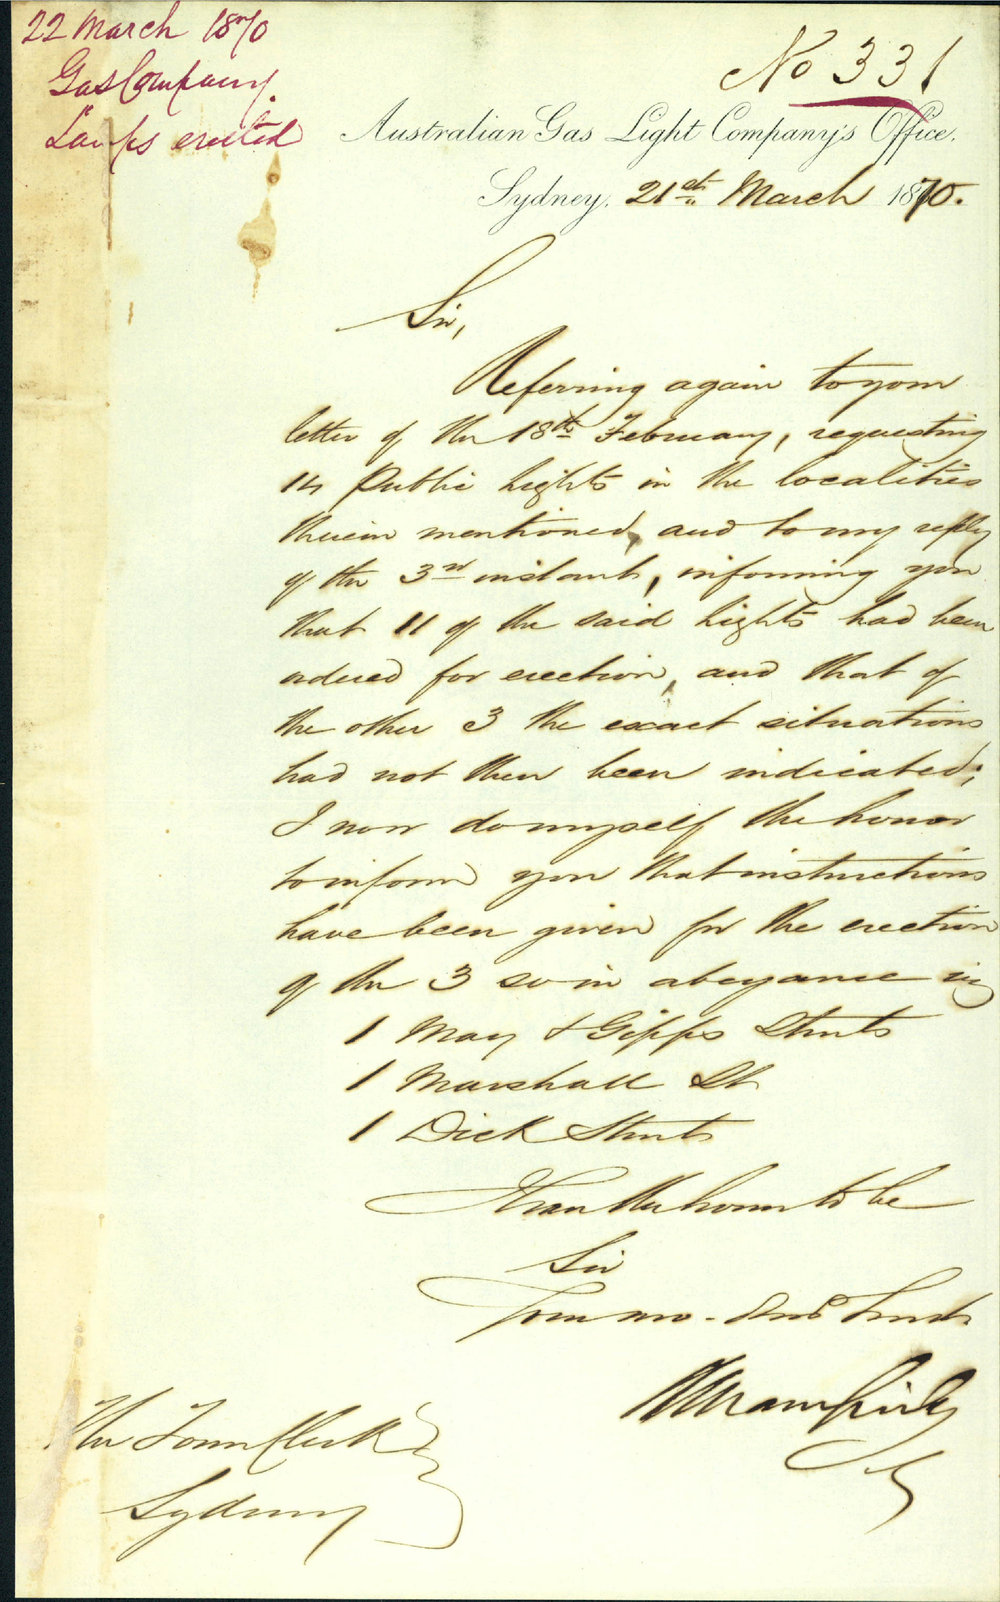 22 March 1870
Gas Company.
Lamps erected
No 331
Australian Gas Light Company's Office.
Sydney, 21st March 1870.
Sir,
Referring again to your
letter of the 18th February, requesting
14 Public Lights in the localities
therein mentioned, and to my reply
of the 3rd instant, informing you
that 11 of the said Lights had been
ordered for erection, and that of
the other 3 the exact situations
had not then been indicated;
I now do myself the honor
to inform you that instructions
have been given for the erection
of the 3 so in abeyance viz
1 May & Gipps Streets
1 Marshall St
1 Dick Street
I have the honor to be
Sir
Your mo. Obdt Servt
The Town Clerk
Sydney